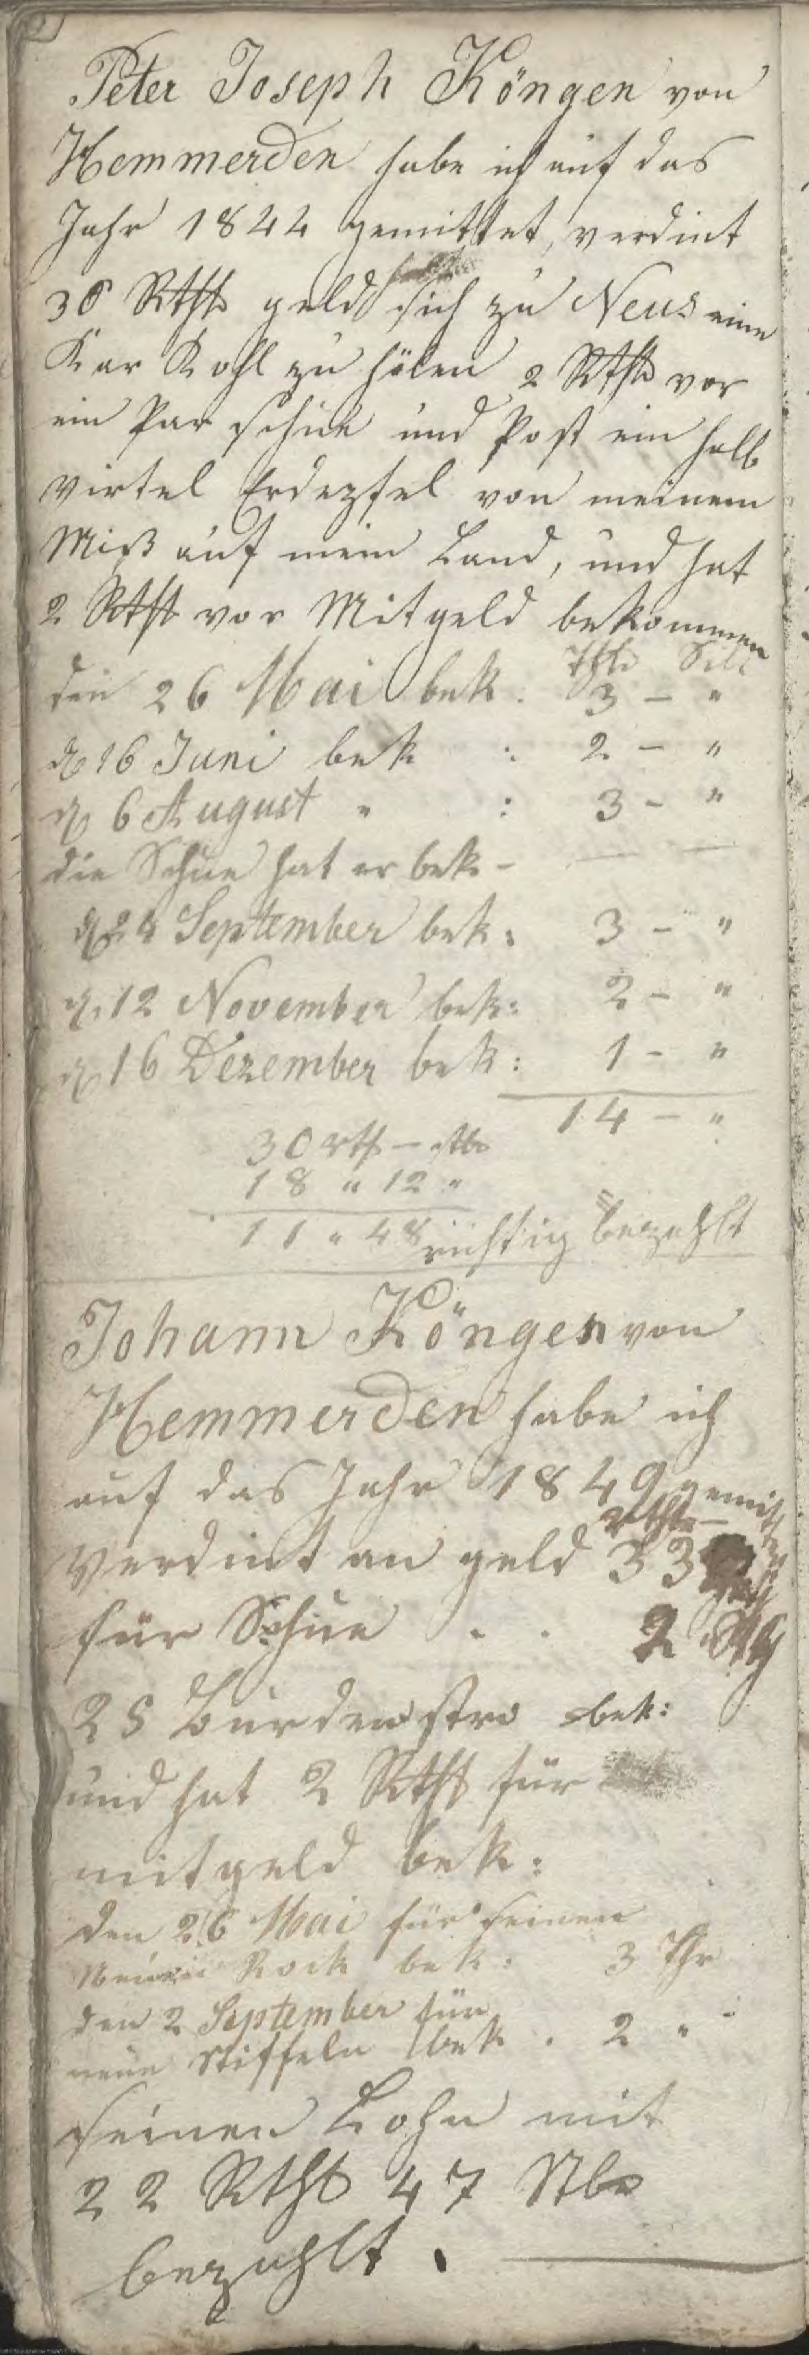 Peter Joseph Köngen von
Hemmerden habe ich auf das
Jahr 1844 gemittet, verdint
30 Rthlr geld sich zu Neus eine
Kar Kohl zu hölen 2 Rthlr vor
ein Par schue und Post ein halb
virtel Erdepfel von meinem
Miß auf mein Land, und hat
2 Rthlr vor Mitgeld bekommen
Thlr Silb
den 26 Mai bek. 3 - "
d 16 Juni bek : 2 - "
d 6 August " : 3 - "
die Schue hat er bek - — —
d 24 September bek: 3 - "
d. 12 November bek: 2 - "
d 16 Dezember bek: 1 - "
14 - "
30 rth - stbr
18 " 12 "
11 " 48 richtig bezahlt
Johann Köngen von
Hemmerden habe ich
auf das Jahr 1849 gemittet
rthlr
verdint an geld 33
für Schue . . 2
25 Burden stro bek:
und hat 2 Rthlr für
mitgeld bek:
den 26 Mai für seinen
Rock bek: 3 Thr
den 2 September für
neue Stiffeln bek . 2 "
seinen Lohn mit
22 Rthlr 47 Stbr
bezahlt.